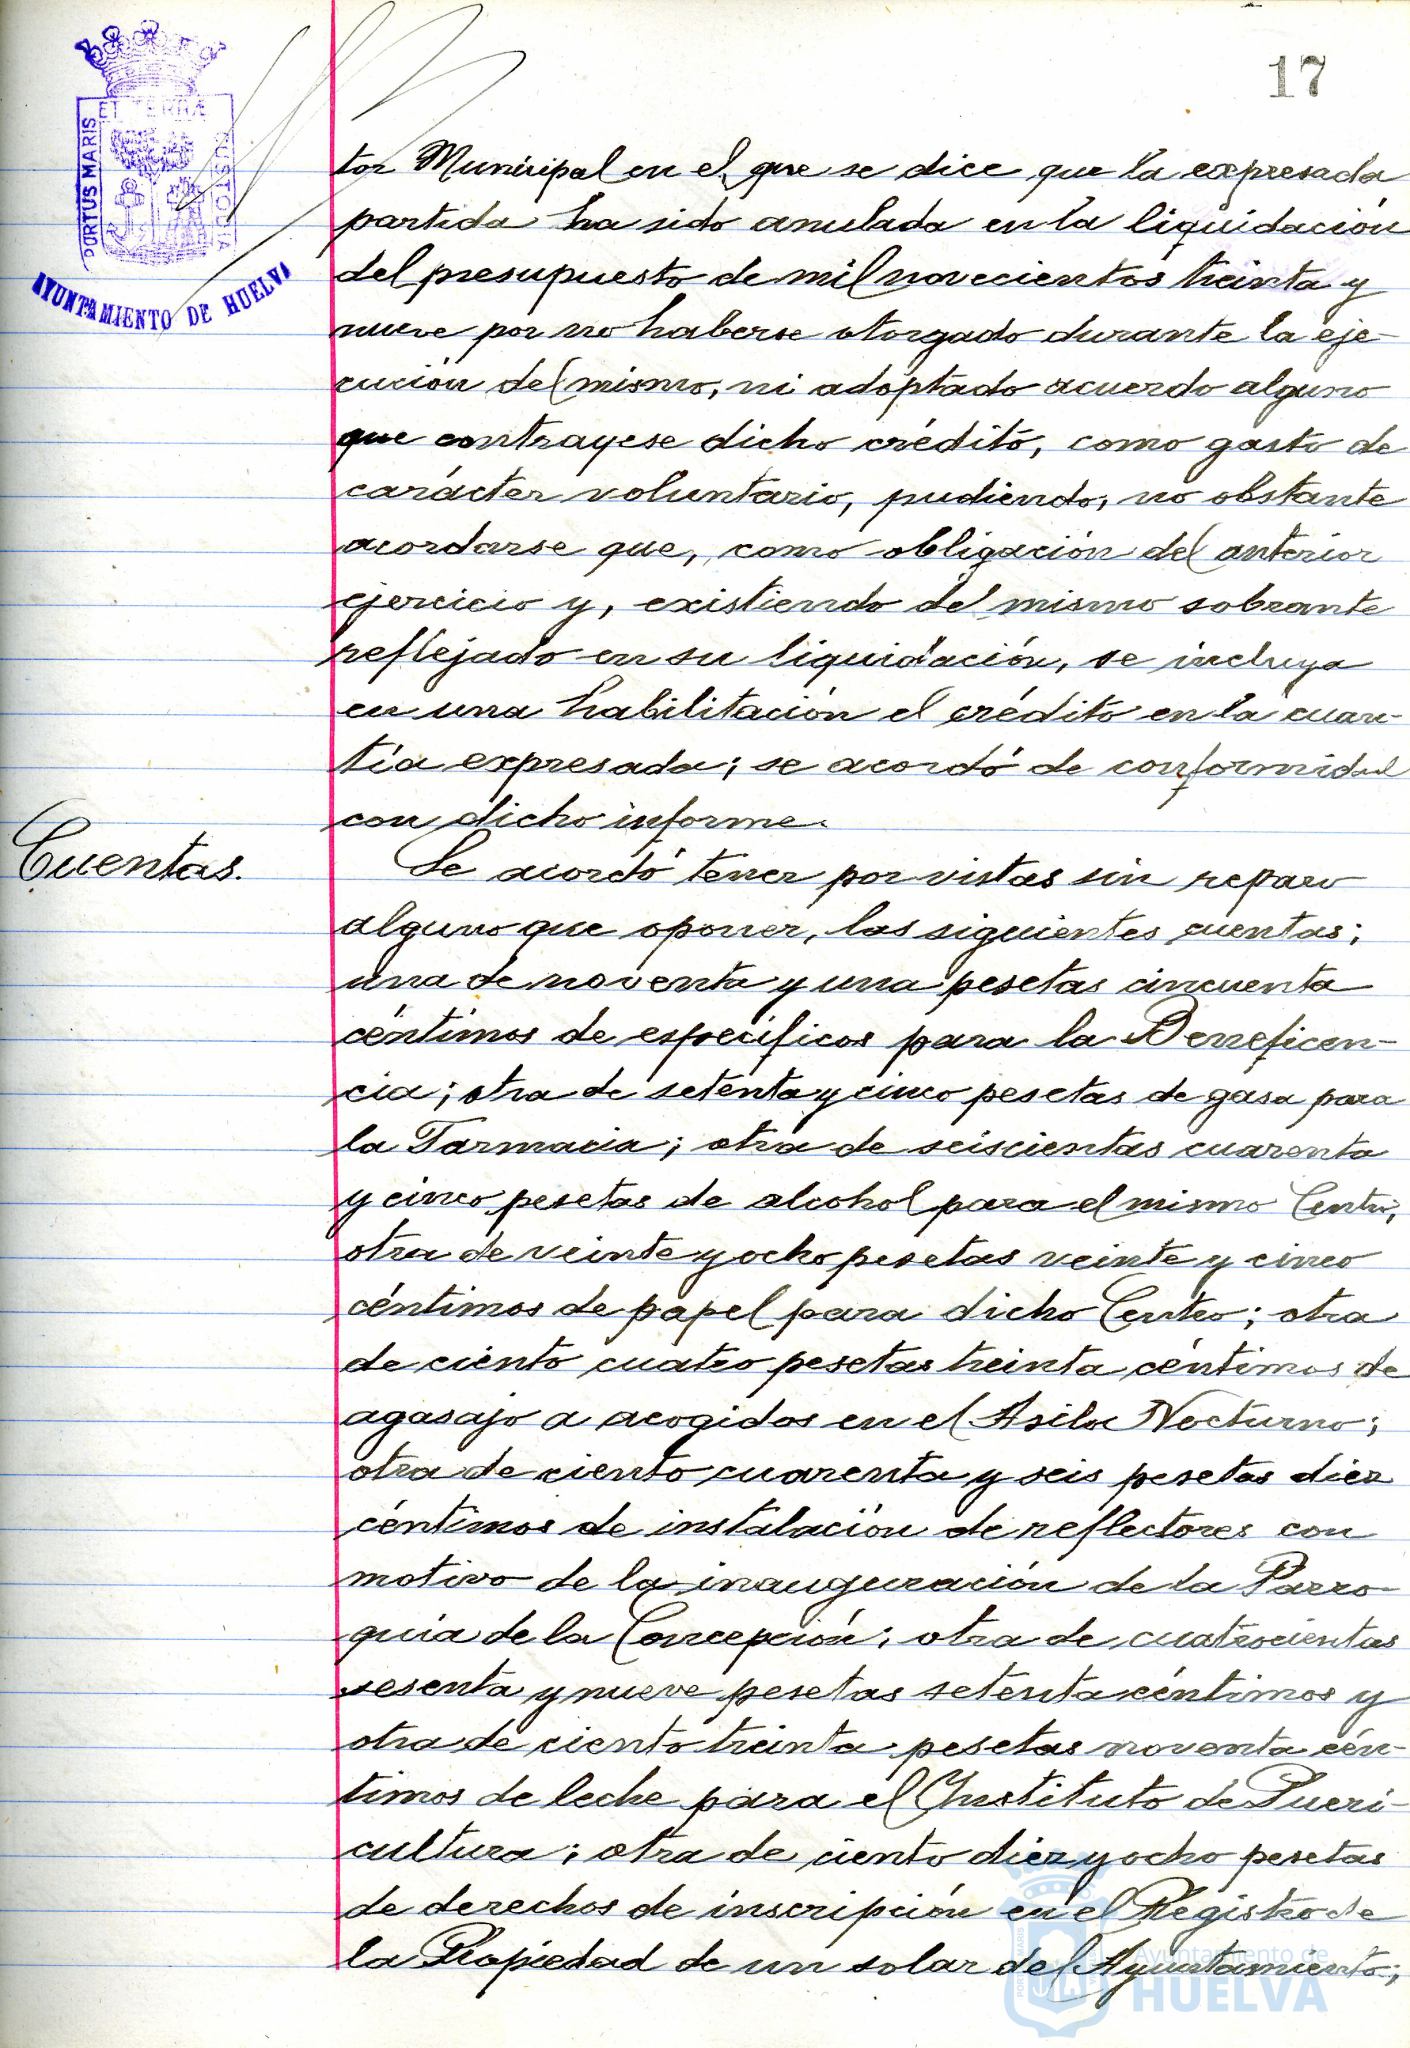 17
ET TERRÆ
PORTUS MARIS
CUSTODIA
AYUNTAMIENTO DE HUELVA
tor Municipal en el que se dice que la expresada
partida ha sido anulada en la liquidación
del presupuesto de mil novecientos treinta y
nueve por no haberse otorgado durante la eje-
cución del mismo, ni adoptado acuerdo alguno
que contrayese dicho crédito, como gasto de
carácter voluntario, pudiendo, no obstante
acordarse que, como obligación del anterior
ejercicio y, existiendo del mismo sobrante
reflejado en su liquidación, se incluya
en una habilitación el crédito en la cuan-
tía expresada; se acordó de conformidad
con dicho informe.
Cuentas.
Se acordó tener por vistas sin reparo
alguno que oponer, las siguientes cuentas;
una de noventa y una pesetas cincuenta
céntimos de específicos para la Beneficen-
cia; otra de setenta y cinco pesetas de gasa para
la Farmacia; otra de seiscientas cuarenta
y cinco pesetas de alcohol para el mismo Centro,
otra de veinte y ocho pesetas veinte y cinco
céntimos de papel para dicho Centro; otra
de ciento cuatro pesetas treinta céntimos de
agasajo a acogidos en el Asilo Nocturno;
otra de ciento cuarenta y seis pesetas diez
céntimos de instalación de reflectores con
motivo de la inauguración de la Parro-
quia de la Concepción; otra de cuatrocientas
sesenta y nueve pesetas setenta céntimos y
otra de ciento treinta pesetas noventa cén-
timos de leche para el Instituto de Pueri-
cultura; otra de ciento diez y ocho pesetas
de derechos de inscripción en el Registro de
la Propiedad de un solar del Ayuntamiento;
Ayuntamiento de
HUELVA